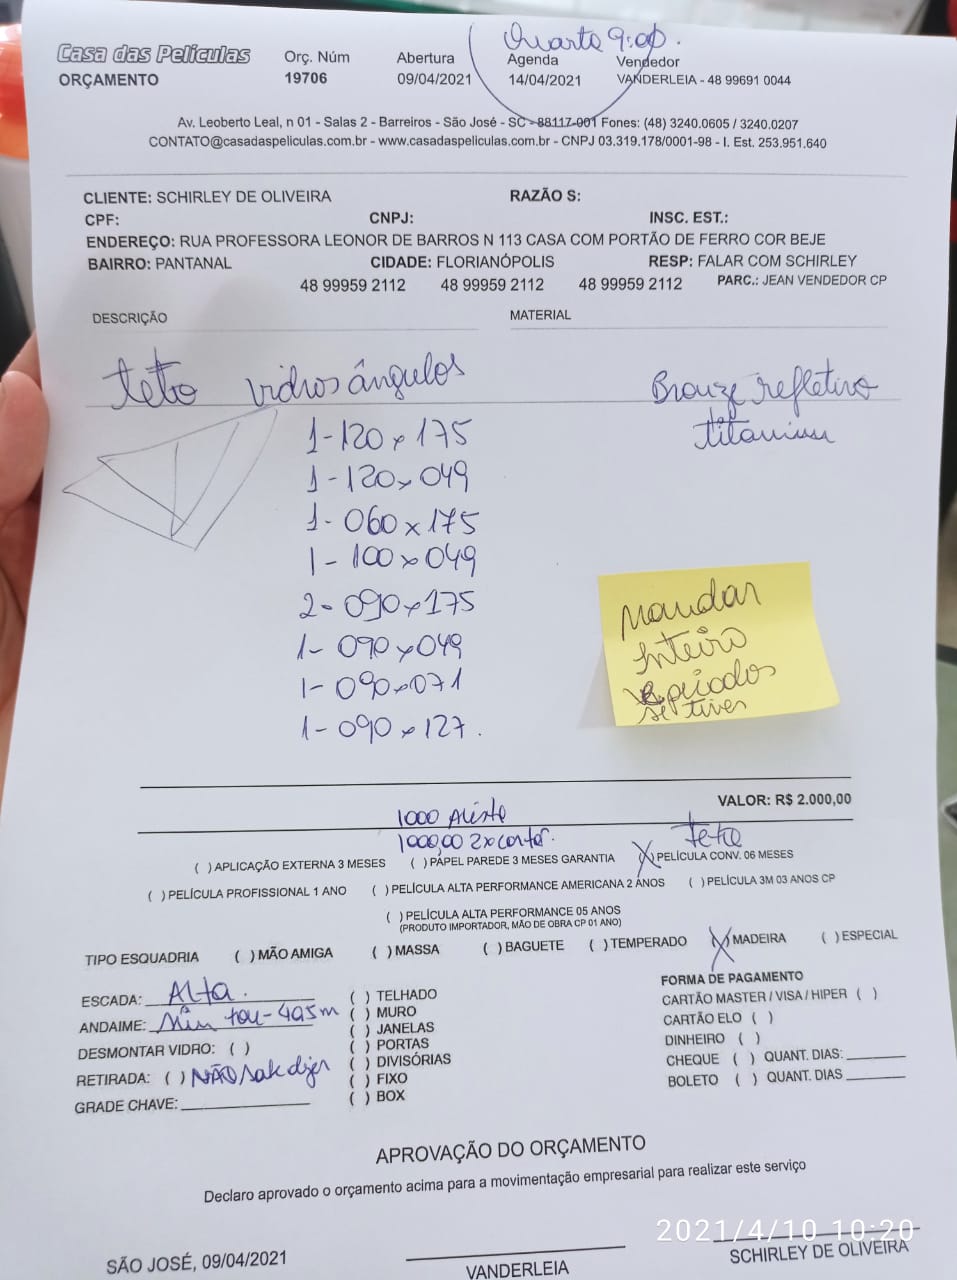 Quarta 9:00.
Casa das Películas
ORÇAMENTO
Orç. Núm
19706
Abertura
09/04/2021
Agenda
14/04/2021
Vendedor
VANDERLEIA - 48 99691 0044
Av. Leoberto Leal, n 01 - Salas 2 - Barreiros - São José - SC - 88117-001 Fones: (48) 3240.0605 / 3240.0207
CONTATO@casadaspeliculas.com.br - www.casadaspeliculas.com.br - CNPJ 03.319.178/0001-98 - I. Est. 253.951.640
CLIENTE: SCHIRLEY DE OLIVEIRA RAZÃO S:
CPF: CNPJ: INSC. EST.:
ENDEREÇO: RUA PROFESSORA LEONOR DE BARROS N 113 CASA COM PORTÃO DE FERRO COR BEJE
BAIRRO: PANTANAL CIDADE: FLORIANÓPOLIS RESP: FALAR COM SCHIRLEY
48 99959 2112 48 99959 2112 48 99959 2112 PARC.: JEAN VENDEDOR CP
DESCRIÇÃO MATERIAL
teto vidros ângulos Bronze refletivo
titanium
1-120 x 175
1-120x049
1-060 x 175
1-100x049
2-090x175
1-090x049
1-090x071
1-090x127.
Mandar
Inteiro
se tiver
VALOR: R$ 2.000,00
1000
1000,00 2x
Teto
( ) APLICAÇÃO EXTERNA 3 MESES ( ) PAPEL PAREDE 3 MESES GARANTIA (X) PELÍCULA CONV. 06 MESES
( ) PELÍCULA PROFISSIONAL 1 ANO ( ) PELÍCULA ALTA PERFORMANCE AMERICANA 2 ANOS ( ) PELÍCULA 3M 03 ANOS CP
( ) PELÍCULA ALTA PERFORMANCE 05 ANOS
(PRODUTO IMPORTADOR, MÃO DE OBRA CP 01 ANO)
TIPO ESQUADRIA ( ) MÃO AMIGA ( ) MASSA ( ) BAGUETE ( ) TEMPERADO (X) MADEIRA ( ) ESPECIAL
ESCADA: Alta.
ANDAIME:
DESMONTAR VIDRO: ( )
RETIRADA: ( ) NÃO
GRADE CHAVE:
( ) TELHADO
( ) MURO
( ) JANELAS
( ) PORTAS
( ) DIVISÓRIAS
( ) FIXO
( ) BOX
FORMA DE PAGAMENTO
CARTÃO MASTER / VISA / HIPER ( )
CARTÃO ELO ( )
DINHEIRO ( )
CHEQUE ( ) QUANT. DIAS:
BOLETO ( ) QUANT. DIAS
APROVAÇÃO DO ORÇAMENTO
Declaro aprovado o orçamento acima para a movimentação empresarial para realizar este serviço
2021/4/10 10:20
SÃO JOSÉ, 09/04/2021 VANDERLEIA SCHIRLEY DE OLIVEIRA